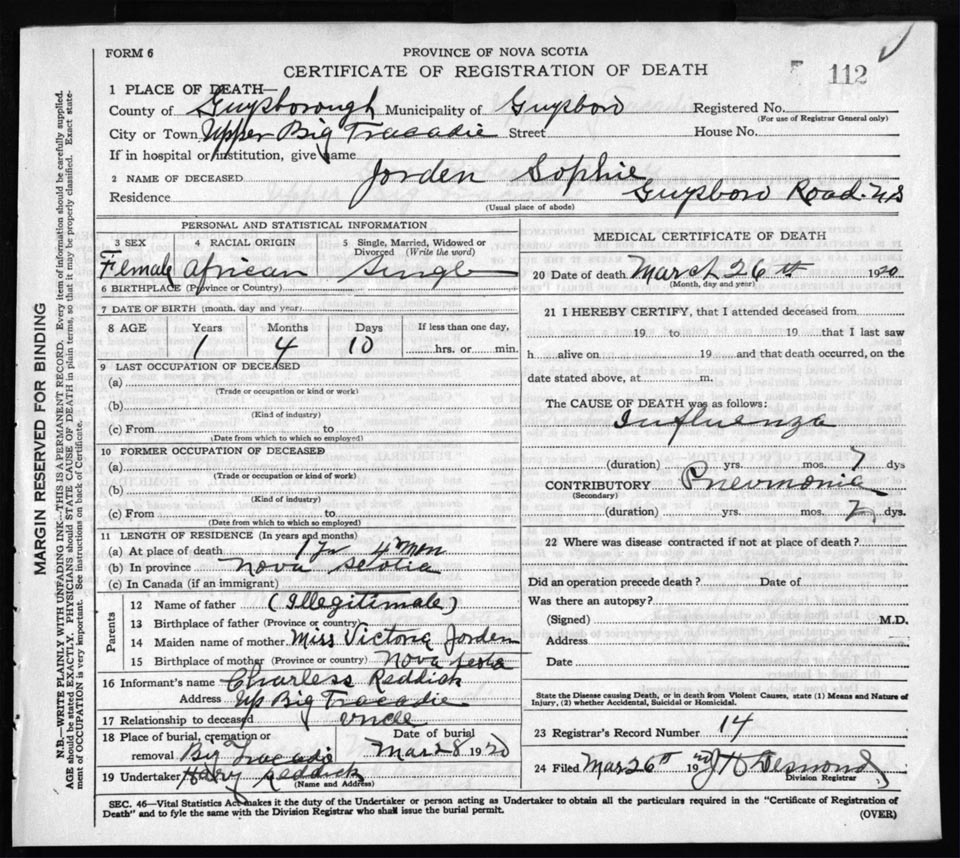 FORM 6
PROVINCE OF NOVA SCOTIA
CERTIFICATE OF REGISTRATION OF DEATH
112
1 PLACE OF DEATH
County of Guysborough Municipality of Guysboro Registered No.
(For use of Registrar General only)
City or Town Upper Big Tracadie Street House No.
If in hospital or institution, give name
2 NAME OF DECEASED Jorden Sophie
Residence Guysboro Road. N.S
(Usual place of abode)
PERSONAL AND STATISTICAL INFORMATION
3 SEX 4 RACIAL ORIGIN 5 Single, Married, Widowed or Divorced (Write the word)
Female African Single
6 BIRTHPLACE (Province or Country)
7 DATE OF BIRTH (month, day and year)
8 AGE Years Months Days If less than one day,
1 4 10 hrs. or min.
9 LAST OCCUPATION OF DECEASED
(a)
(Trade or occupation or kind or work)
(b)
(Kind of industry)
(c) From to
(Date from which to which so employed)
10 FORMER OCCUPATION OF DECEASED
(a)
(Trade or occupation or kind of work)
(b)
(Kind of industry)
(c) From to
(Date from which to which so employed)
11 LENGTH OF RESIDENCE (In years and months)
(a) At place of death 1 yr 4 mon
(b) In province Nova Scotia
(c) In Canada (if an immigrant)
Parents
12 Name of father (Illegitimate)
13 Birthplace of father (Province or country)
14 Maiden name of mother Miss Victoria Jorden
15 Birthplace of mother (Province or country) Nova
16 Informant's name Charless Reddick
Address Up Big Tracadie
17 Relationship to deceased uncle
18 Place of burial, cremation or removal Big Tracadie Date of burial Mar 28 1920
19 Undertaker Reddick
(Name and Address)
MEDICAL CERTIFICATE OF DEATH
20 Date of death March 26th 1920
(Month, day and year)
21 I HEREBY CERTIFY, that I attended deceased from
19 to 19 that I last saw
h alive on 19 and that death occurred, on
date stated above, at m.
The CAUSE OF DEATH was as follows:
Influenza
(duration) yrs. mos. 7 dys
CONTRIBUTORY Pneumonia
(Secondary)
(duration) yrs. mos. dys.
22 Where was disease contracted if not at place of death?
Did an operation precede death? Date of
Was there an autopsy?
(Signed) M.D.
Address
Date
State the Disease causing Death, or in death from Violent Causes, state (1) Means and Nature of Injury, (2) whether Accidental, Suicidal or Homicidal.
23 Registrar's Record Number 14
24 Filed Mar 26th 1920 J H Desmond
Division Registrar
SEC. 46—Vital Statistics Act makes it the duty of the Undertaker or person acting as Undertaker to obtain all the particulars required in the "Certificate of Registration of Death" and to fyle the same with the Division Registrar who shall issue the burial permit.
(OVER)
MARGIN RESERVED FOR BINDING
N.B.—WRITE PLAINLY WITH UNFADING INK—THIS IS A PERMANENT RECORD. Every item of information should be carefully supplied.
AGE should be stated EXACTLY. PHYSICIANS should STATE CAUSE OF DEATH in plain terms, so that it may be properly classified. Exact statement of OCCUPATION is very important. See instructions on back of Certificate.